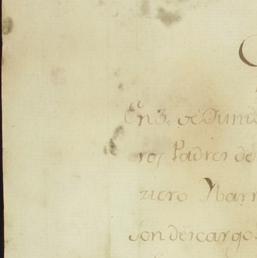 En 3, de Juni
ros Padres de
ziero Ybarr
son descargo